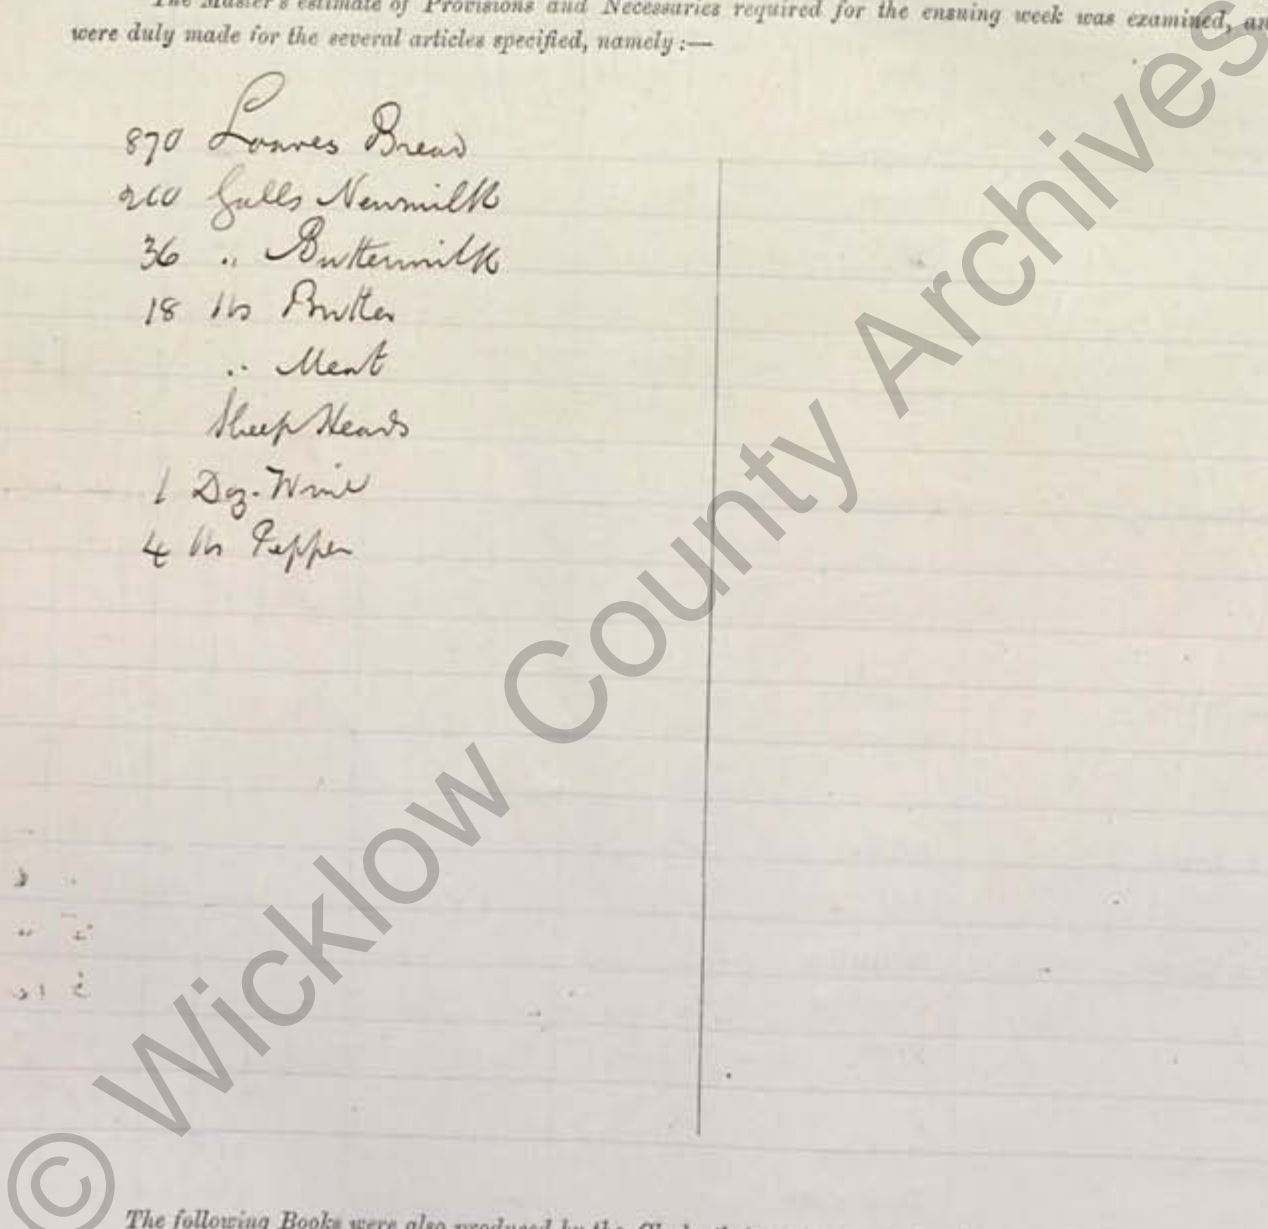 The Master's estimate of Provisions and Necessaries required for the ensuing week was examined, an
were duly made for the several articles specified, namely :—
870 Loaves Bread
210 Galls Newmilk
36 " Buttermilk
18 lbs Butter
" Meat
Sheep Heads
1 Doz. Wine
4 lbs Pepper
© Wicklow County Archives
The following Books were also produced by the